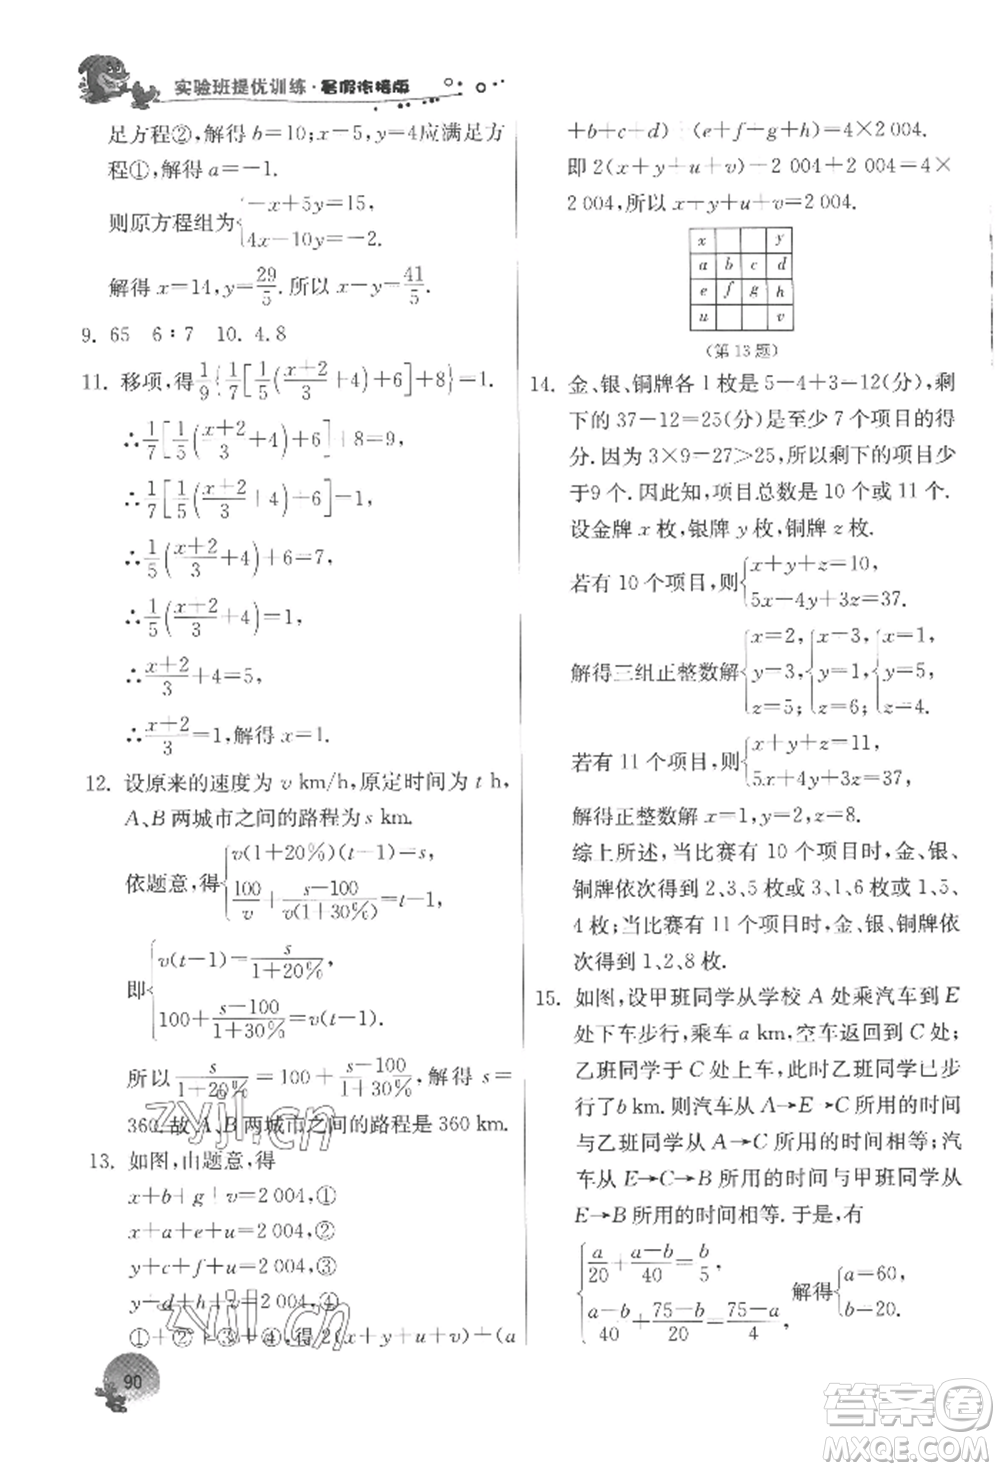 实验班提优训练·暑假衔接版
足方程②,解得 b=10;x=5,y=4应满足方
程①,解得 a=-1.
则原方程组为{-x+5y=15,
4x-10y=-2.
解得 x=14,y=29/5.所以 x-y=41/5.
9. 65 6:7 10. 4.8
11. 移项,得1/9{1/7[1/5((x+2)/3+4)+6]+8}=1.
∴1/7[1/5((x+2)/3+4)+6]+8=9,
∴1/7[1/5((x+2)/3+4)+6]=1,
∴1/5((x+2)/3+4)+6=7,
∴1/5((x+2)/3+4)=1,
∴(x+2)/3+4=5,
∴(x+2)/3=1,解得 x=1.
12. 设原来的速度为 v km/h,原定时间为 t h,
A、B 两城市之间的路程为 s km.
依题意,得{v(1+20%)(t-1)=s,
100/v+(s-100)/(v(1+30%))=t-1,
即{v(t-1)=s/(1+20%),
100+(s-100)/(1+30%)=v(t-1).
所以 s/(1+20%)=100+(s-100)/(1+30%),解得 s=
360.故 A、B 两城市之间的路程是 360 km.
13. 如图,由题意,得
x+b+g+v=2 004,①
x+a+e+u=2 004,②
y+c+f+u=2 004,③
y+d+h+v=2 004,④
①+②+③+④,得 2(x+y+u+v)+(a
90
+b+c+d)+(e+f+g+h)=4×2 004.
即 2(x+y+u+v)+2 004+2 004=4×
2 004,所以 x+y+u+v=2 004.
x y
a b c d
e f g h
u v
(第 13 题)
14. 金、银、铜牌各 1 枚是 5+4+3=12(分),剩
下的 37-12=25(分)是至少 7 个项目的得
分.因为 3×9=27>25,所以剩下的项目少
于9 个.因此知,项目总数是 10 个或 11 个.
设金牌 x 枚,银牌 y 枚,铜牌 z 枚.
若有 10 个项目,则{x+y+z=10,
5x+4y+3z=37.
解得三组正整数解{x=2,y=3,z=5;{x=3,y=1,z=6;{x=1,y=5,z=4.
若有 11 个项目,则{x+y+z=11,
5x+4y+3z=37,
解得正整数解 x=1,y=2,z=8.
综上所述,当比赛有 10 个项目时,金、银、
铜牌依次得到 2、3、5 枚或 3、1、6 枚或 1、5、
4 枚;当比赛有 11 个项目时,金、银、铜牌依
次得到 1、2、8 枚.
15. 如图,设甲班同学从学校 A 处乘汽车到 E
处下车步行,乘车 a km,空车返回到 C 处;
乙班同学于 C 处上车,此时乙班同学已步
行了b km.则汽车从 A→E→C 所用的时间
与乙班同学从 A→C 所用的时间相等;汽
车从 E→C→B 所用的时间与甲班同学从
E→B 所用的时间相等.于是,有
{a/20+(a-b)/40=b/5,
(a-b)/40+(75-b)/20=(75-a)/4, 解得{a=60,
b=20.
zyjl.cn
zyjl.cn
答案圈
MXQE.COM